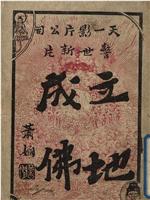 天一影片公司
警世新片
立地
成佛